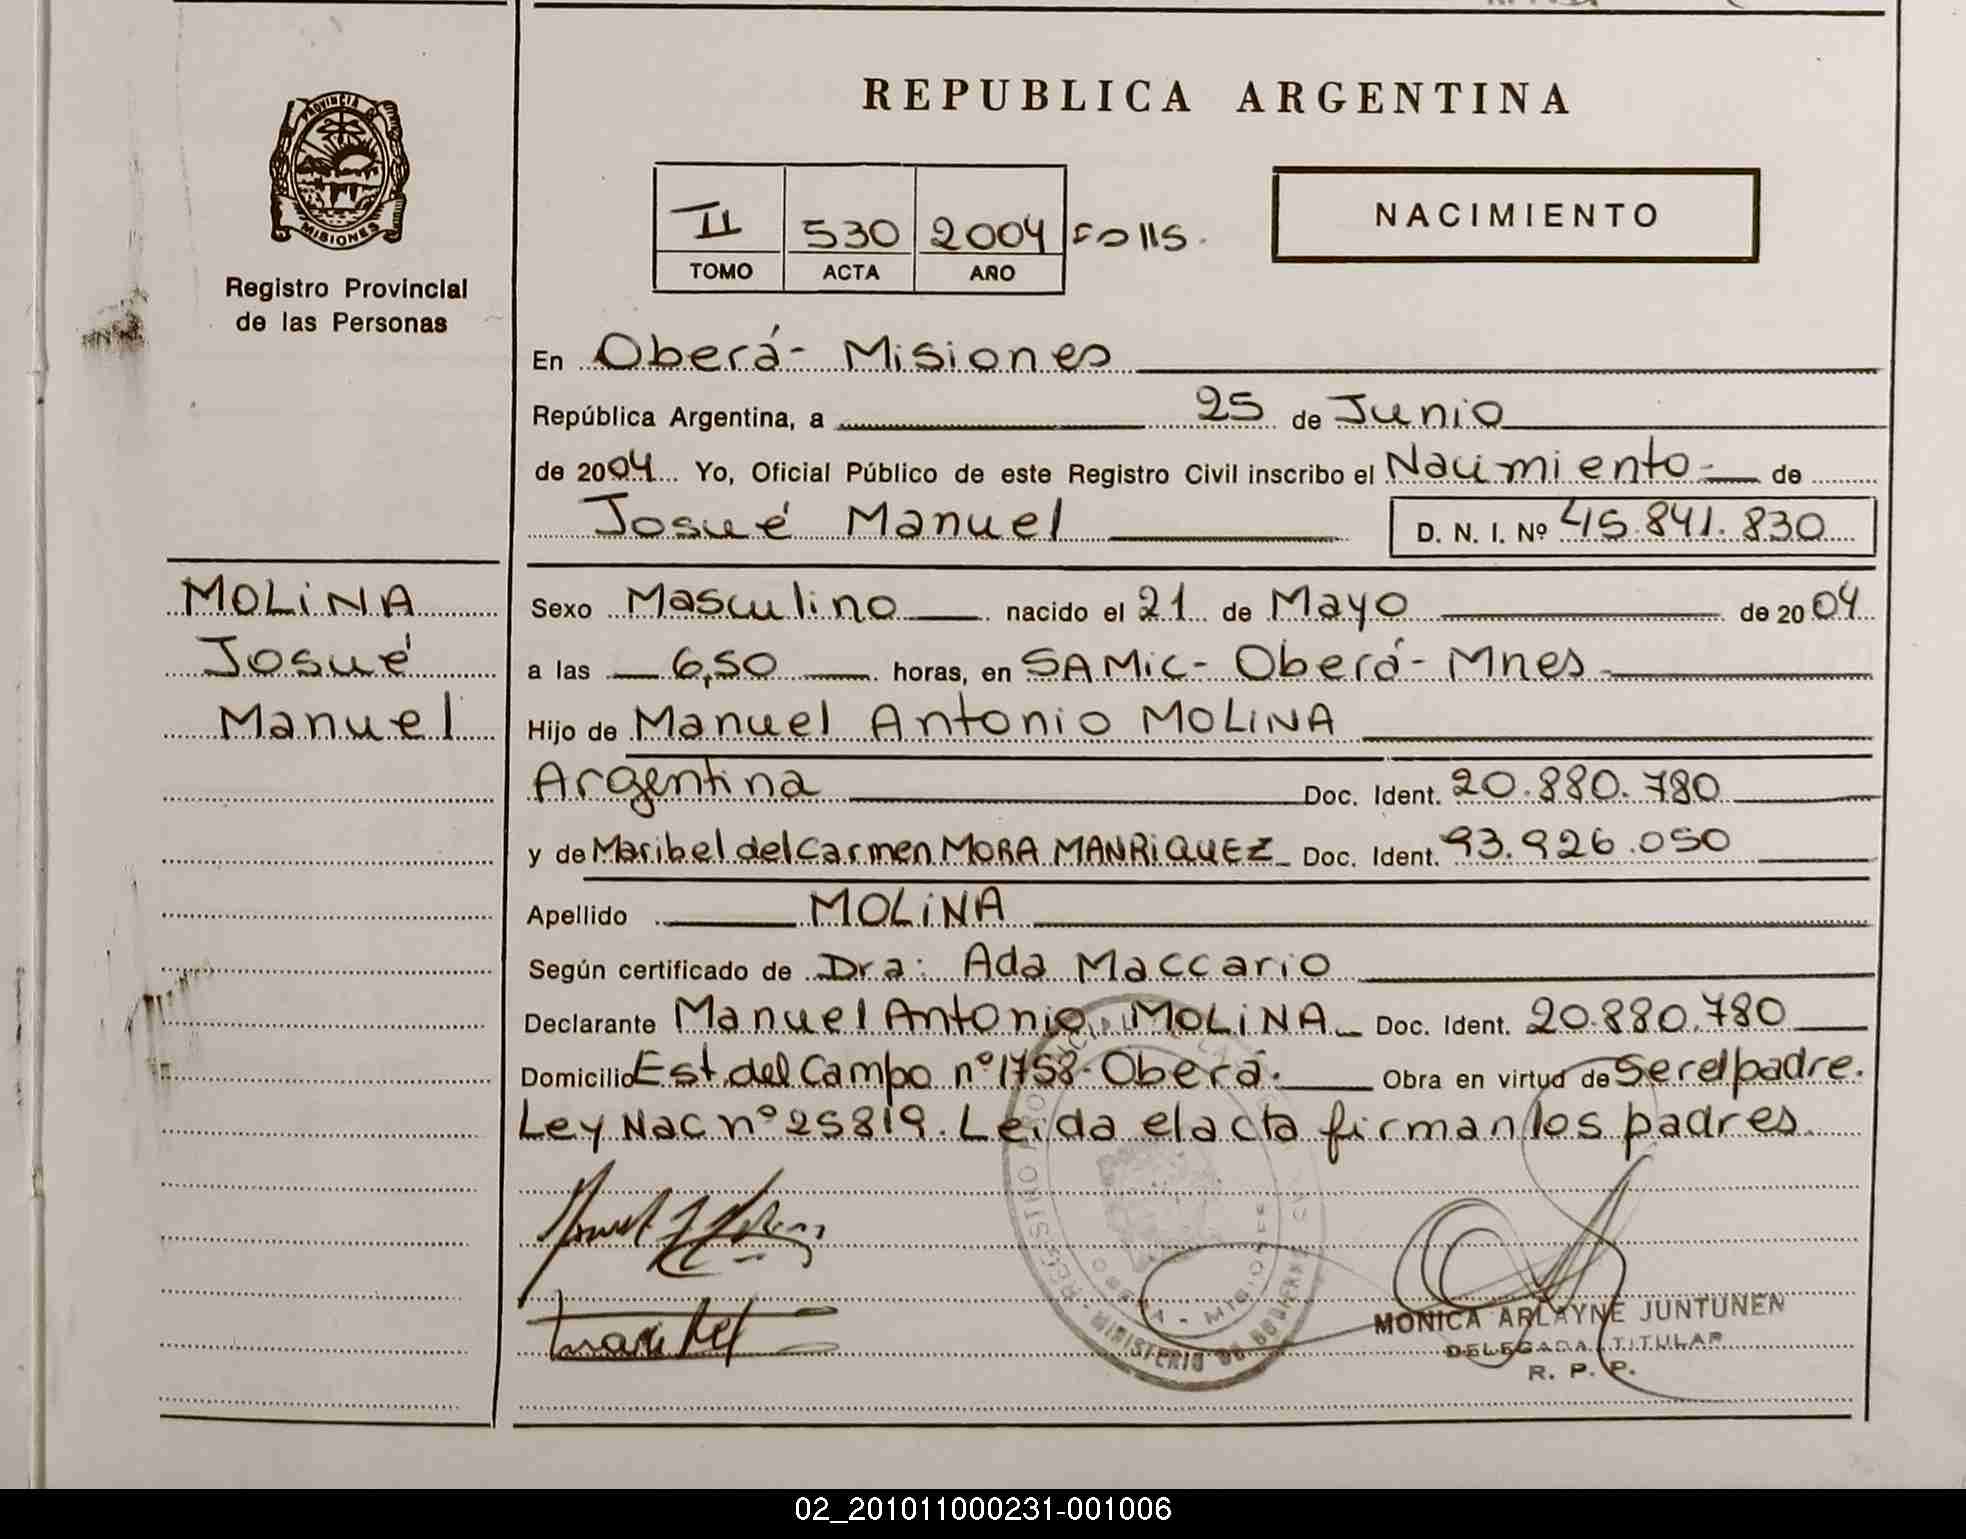 REPUBLICA ARGENTINA
PROVINCIA DE
MISIONES
Registro Provincial
de las Personas
II 530 2004 Fo 115.
TOMO ACTA AÑO
NACIMIENTO
En Oberá- Misiones
República Argentina, a 25 de Junio
de 2004 Yo, Oficial Público de este Registro Civil inscribo el Nacimiento- de
Josué Manuel D. N. I. Nº 45.841.830
MOLiNA
Josué
Manuel
Sexo Masculino nacido el 21 de Mayo de 2004
a las 6,50 horas, en SAMiC- Oberá- Mnes
Hijo de Manuel Antonio MOLiNA
Argentina Doc. Ident. 20.880.780
y de Maribel del Carmen MORA MANRiQUEZ Doc. Ident. 93.926.050
Apellido MOLiNA
Según certificado de Dra: Ada Maccario
Declarante Manuel Antonio MOLiNA Doc. Ident. 20.880.780
Domicilio Est. del Campo nº 1758- Oberá. Obra en virtud de Ser el padre.
Ley Nac nº 25819. Leida el acta firman los padres.
MINISTERIO DE GOBIERNO
MONICA ARLAYNE JUNTUNEN
DELEGADA TITULAR
R. P. P.
02_201011000231-001006